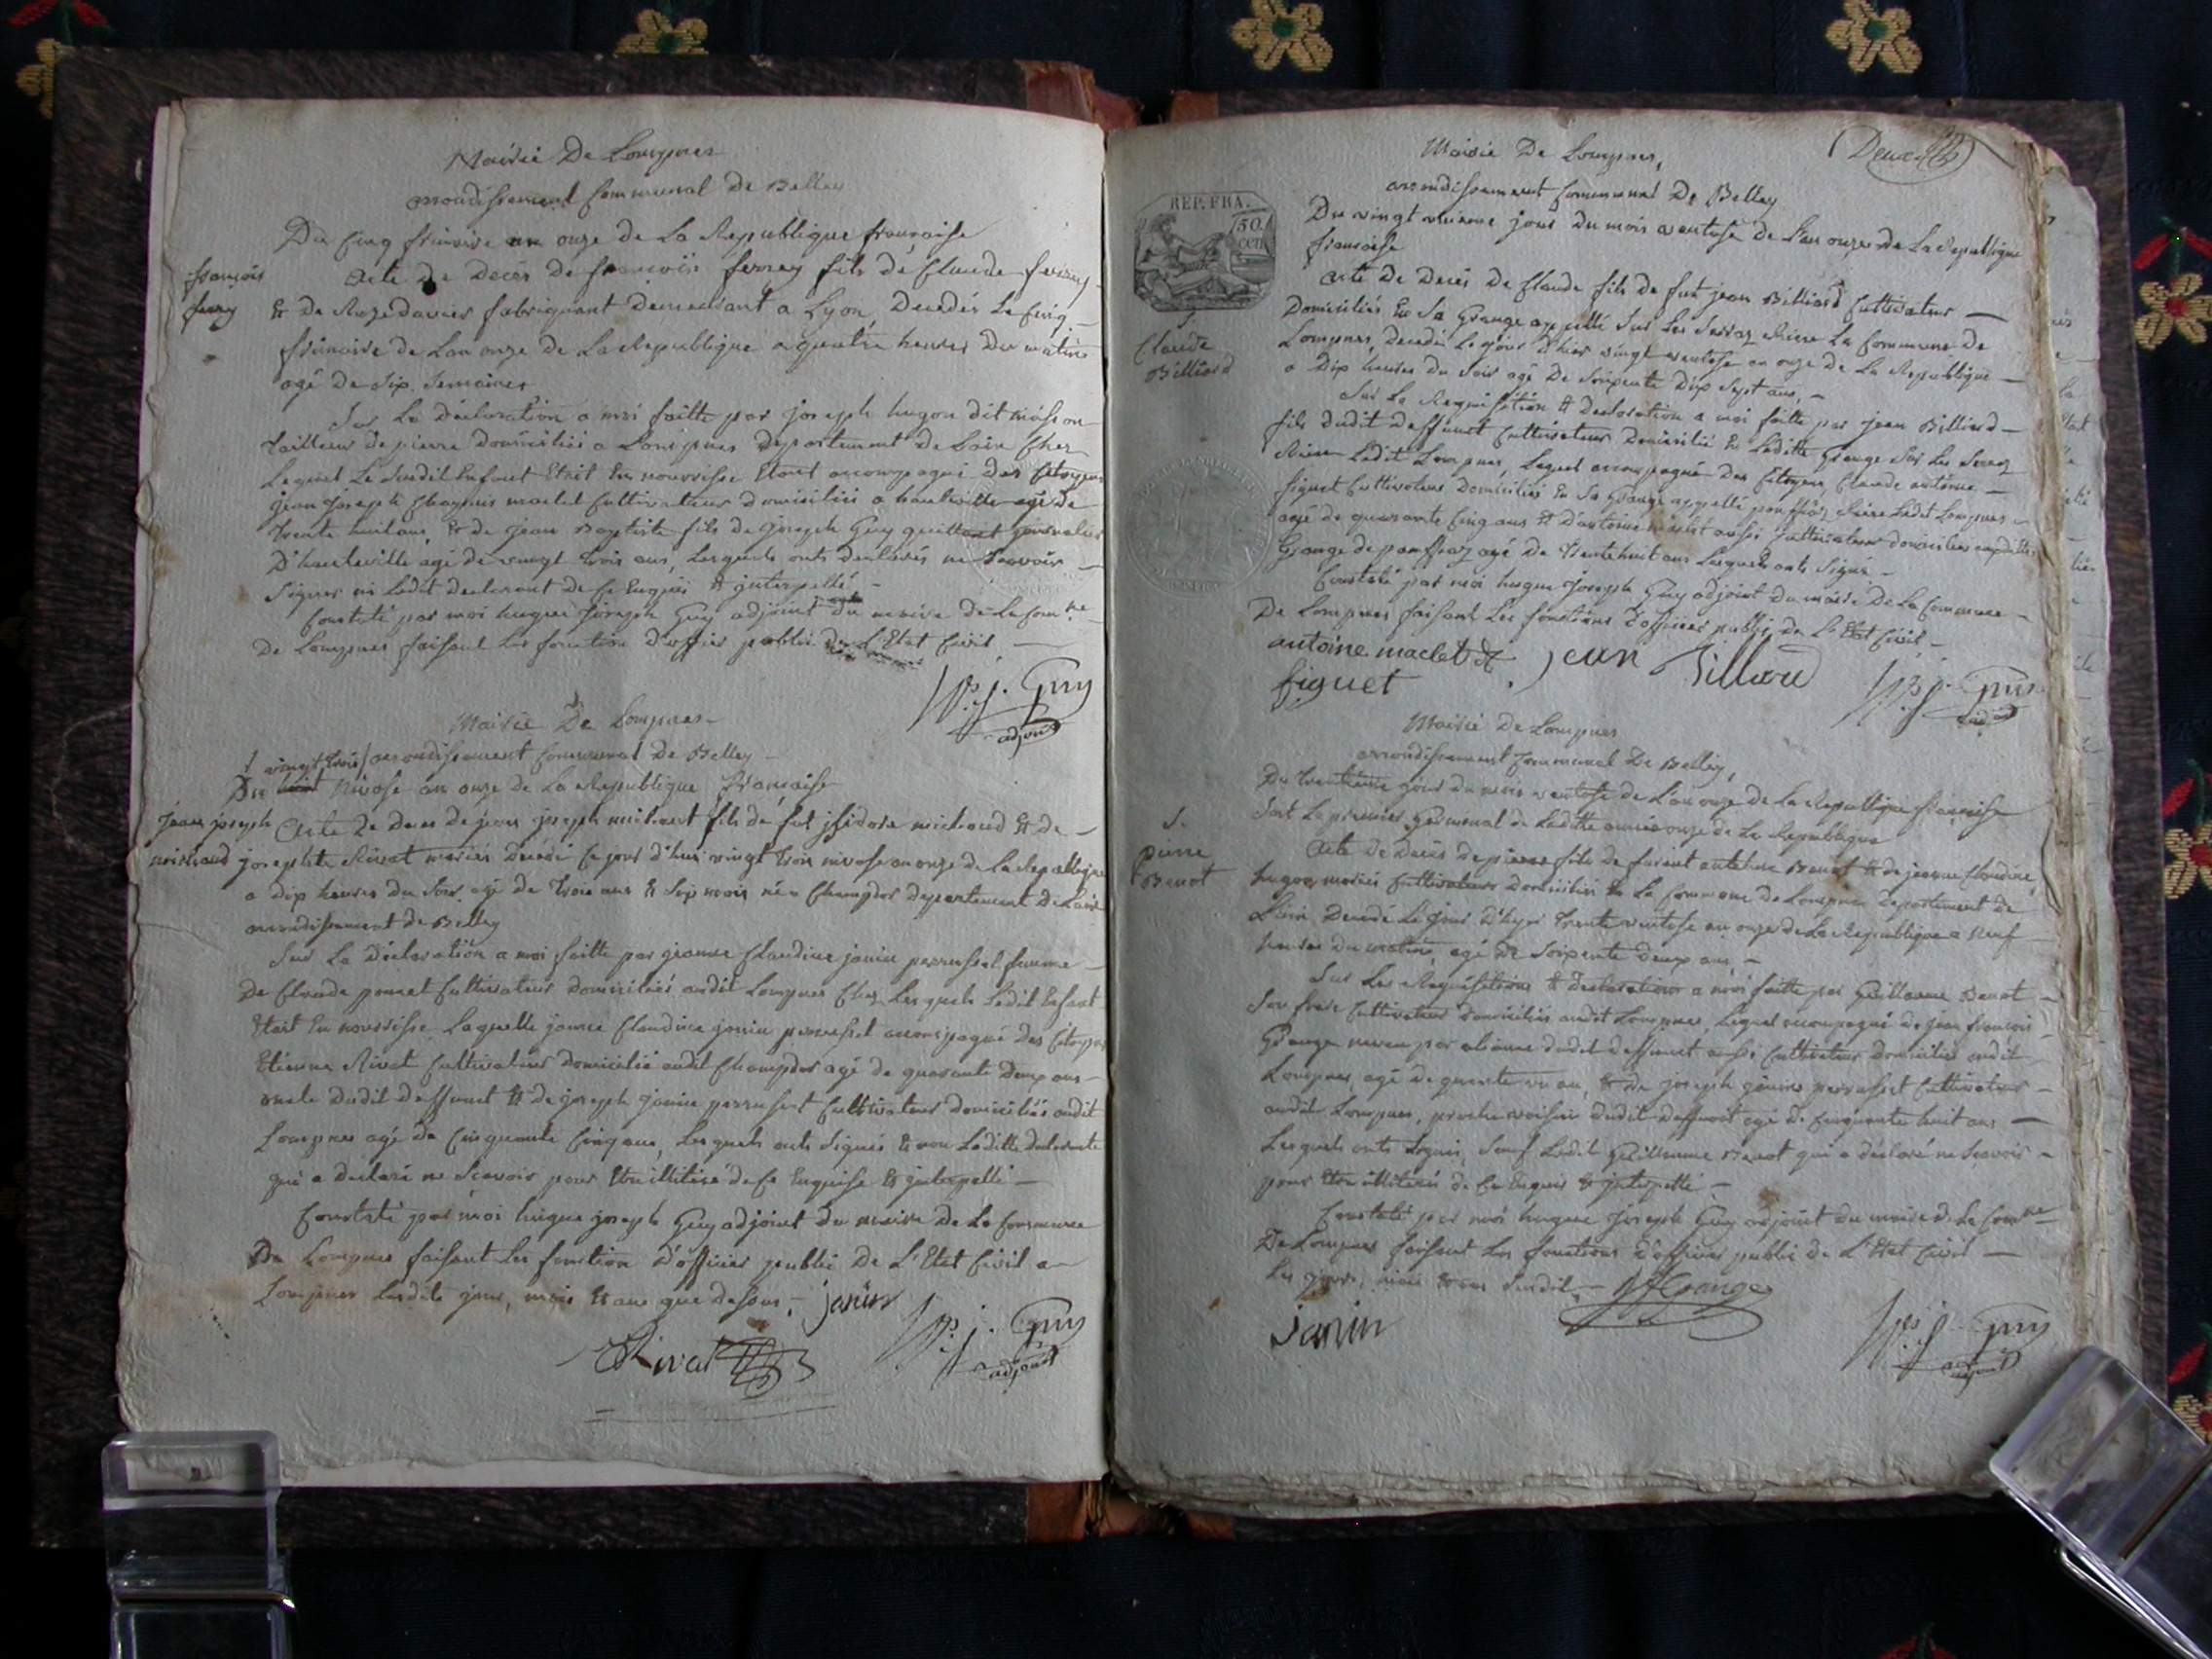 Mairie De Lompnes
arrondissement Communal de Belley
Du Cinq frimaire an onze de La Republique française
françois
ferrey
Acte de Decès de françois ferrey fils de Claude ferrey
& de fabriquant Demeurant a Lyon, Decedés Le Cinq
frimaire de Lan onze de La Republique a quatre heures Du matin
agé de Six Semaines
Sur La Déclaration a moi faitte par joseph hugon dit
tailleur de pierre Domicilié a Lompnes Departement de Lain Chez
Lequel Le Susdit Enfant Etait En nourrisse Etant accompagné Des Citoyens
jean joseph maclet Cultivateur domicilié a hauteville agé de
trente huit ans, & de jean Baptiste fils de joseph Guy
D'hauteville agé de vingt trois ans, Lesquels onts declarés ne Scavoir
Signer ni Ledit declarant de Ce Enquis & interpellé
Constaté par moi hugue joseph Guy adjoint du maire de La Comne
De Lompnes faisant Les fonction d'officier public de L'Etat Civil
Guy
adjoint
Mairie De Lompnes
vingt trois / arrondissement Communal De Belley
Du Nivose an onze de La Republique francaise
jean joseph
michaud
Acte De Deces de jean joseph michaud fils de fut jsidore michaud & de
josephte Rivat mariés Décedé Ce jour d'hui vingt trois nivose an onze de La Republique
a dix heures du Soir agé de trois ans & Six mois né a Champdor departement De Lain
arrondissement de Belley
Sur La Déclaration a moi faitte par jeanne Claudine janin perrusset famme
De Claude poncet Cultivateur domiciliés audit Lompnes Chez Lesquels Ledit Enfant
Etait En nourrisse Laquelle janne Claudine janin perrusset accompagné Des Citoyens
Etienne Rivat Cultivateur Domicilié audit Champdor agé de quarante Deux ans
oncle Dudit Deffunct & de joseph janin perrusset Cultivateur domiciliés audit
Lompnes agé de Cinquante Cinq ans, Lesquels onts Signés & non Laditte declarante
qui a declaré ne Scavoir pour Etre illitéré de Ce Enquise & interpellé
Constaté par moi hugue joseph Guy adjoint du maire De La Commune
De Lompnes faisant Les fonction D'officier public De L'Etat Civil a
Lompnes Lesdits jour, mois & an que Dessus, janin
Rivat
Guy
adjoint
Mairie De Lompnes,
arrondissement Communal De Belley
REP. FRA.
50.
cen
Du vingt unieme jour Du mois ventose de L'an onze de La Republique
francaise
Claude
Billiard
Acte De Deces De Claude fils de fut jean Billiard Cultivateur
Domiciliés En Sa Grange appellé Sur Les Serraz Riere La Commune de
Lompnes, Decedé Le jour d'hier vingt ventose an onze de La Republique
a Dix heures Du Soir agé De Soixente Dix Sept ans,
Sur La Requisition & declaration a moi faitte par jean Billiard
fils dudit deffunct Cultivateur Domicilié En Laditte Grange Sur Les Serraz
Riere Ledit Lompnes, Lequel accompagné Des Citoyens Claude antoine
figuet Cultivateur Domiciliés En Sa Grange appellé Riere Ledit Lompnes
agé de quarante Cinq ans & d'antoine maclet aussi Cultivateur domiciliés
Grange de agé De trente huit ans Lesquels onts Signé
Constaté par moi hugue joseph Guy adjoint du maire De La Commune
De Lompnes faisant Les fonctions D'officier public de L'Etat Civil
antoine maclet jean Billiard
figuet
Guy
adjoint
Mairie De Lompnes
arrondissement Communal De Belley,
Du trentieme jour du mois ventose de L'an onze de La Republique francaise
Le premier Germinal de Laditte année onze de La Republique
pierre
Benot
Acte De Deces De pierre fils de furent antelme Benot & de jeanne Claudine
hugon, mariés Cultivateurs domiciliés En La Commune de Lompnes Departement de
L'ain, Decedé Le jour d'hyer trente ventose an onze de La Republique a Neuf
heures du matin, agé de Soixente Deux ans
Sur Les Requisitions & declaration a moi faitte par Guillaume Benot
Son frere Cultivateur domiciliés audit Lompnes, Lequel accompagné de jean françois
Grange neveu par aliance dudit deffunct aussi Cultivateur Domicilié audit
Lompnes, agé de un an, & de joseph janin perrusset Cultivateur
audit Lompnes, proche voisin dudit Deffunct agé De Cinquante huit ans
Lesquels onts Signés, Sauf Ledit Guillaume Benot qui a déclaré ne Scavoir
pour Etre illitéré de Ce Enquis & interpellé
Constaté par moi hugue joseph Guy adjoint du maire de La Comne
De Lompnes faisant Les fonctions D'officier public de L'Etat Civil
Les jours, mois & an Susdit, Grange
janin
Guy
adjoint